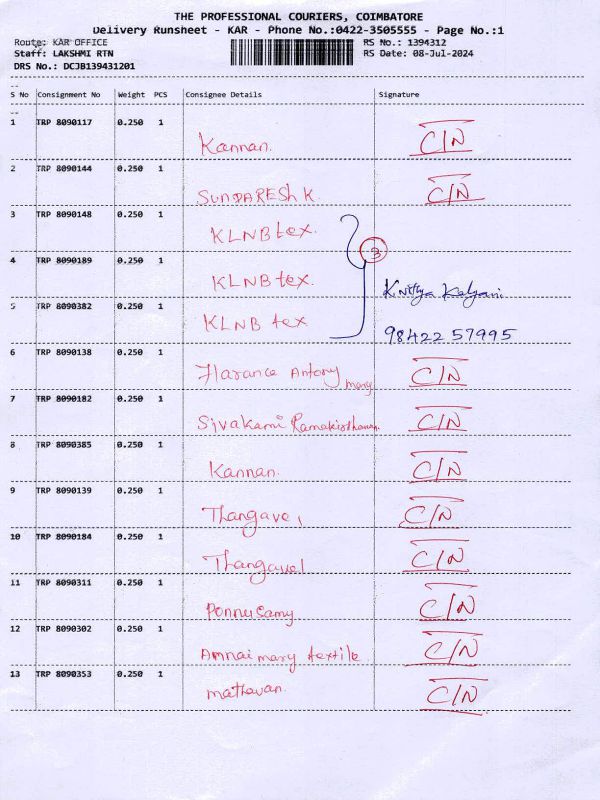 THE PROFESSIONAL COURIERS, COIMBATORE
Delivery Runsheet - KAR - Phone No.:0422-3505555 - Page No.:1
Route: KAR OFFICE RS No.: 1394312
Staff: LAKSHMI RTN RS Date: 08-Jul-2024
DRS No.: DCJB139431201
S No Consignment No Weight PCS Consignee Details Signature
1 TRP 8090117 0.250 1
Kannan. C/N
2 TRP 8090144 0.250 1
SUNDARESH K C/N
3 TRP 8090148 0.250 1
KLNB tex.
3
4 TRP 8090189 0.250 1
KLNB tex. K Nithya Kalyani
5 TRP 8090382 0.250 1
KLNB tex 98422 57995
6 TRP 8090138 0.250 1
Flarance Antony mary C/N
7 TRP 8090182 0.250 1
Sivakami C/N
8 TRP 8090385 0.250 1
Kannan. C/N
9 TRP 8090139 0.250 1
Thangavel C/N
10 TRP 8090184 0.250 1
Thangavel C/N
11 TRP 8090311 0.250 1
Ponnusamy C/N
12 TRP 8090302 0.250 1
Annai mary textile C/N
13 TRP 8090353 0.250 1
mathavan. C/N